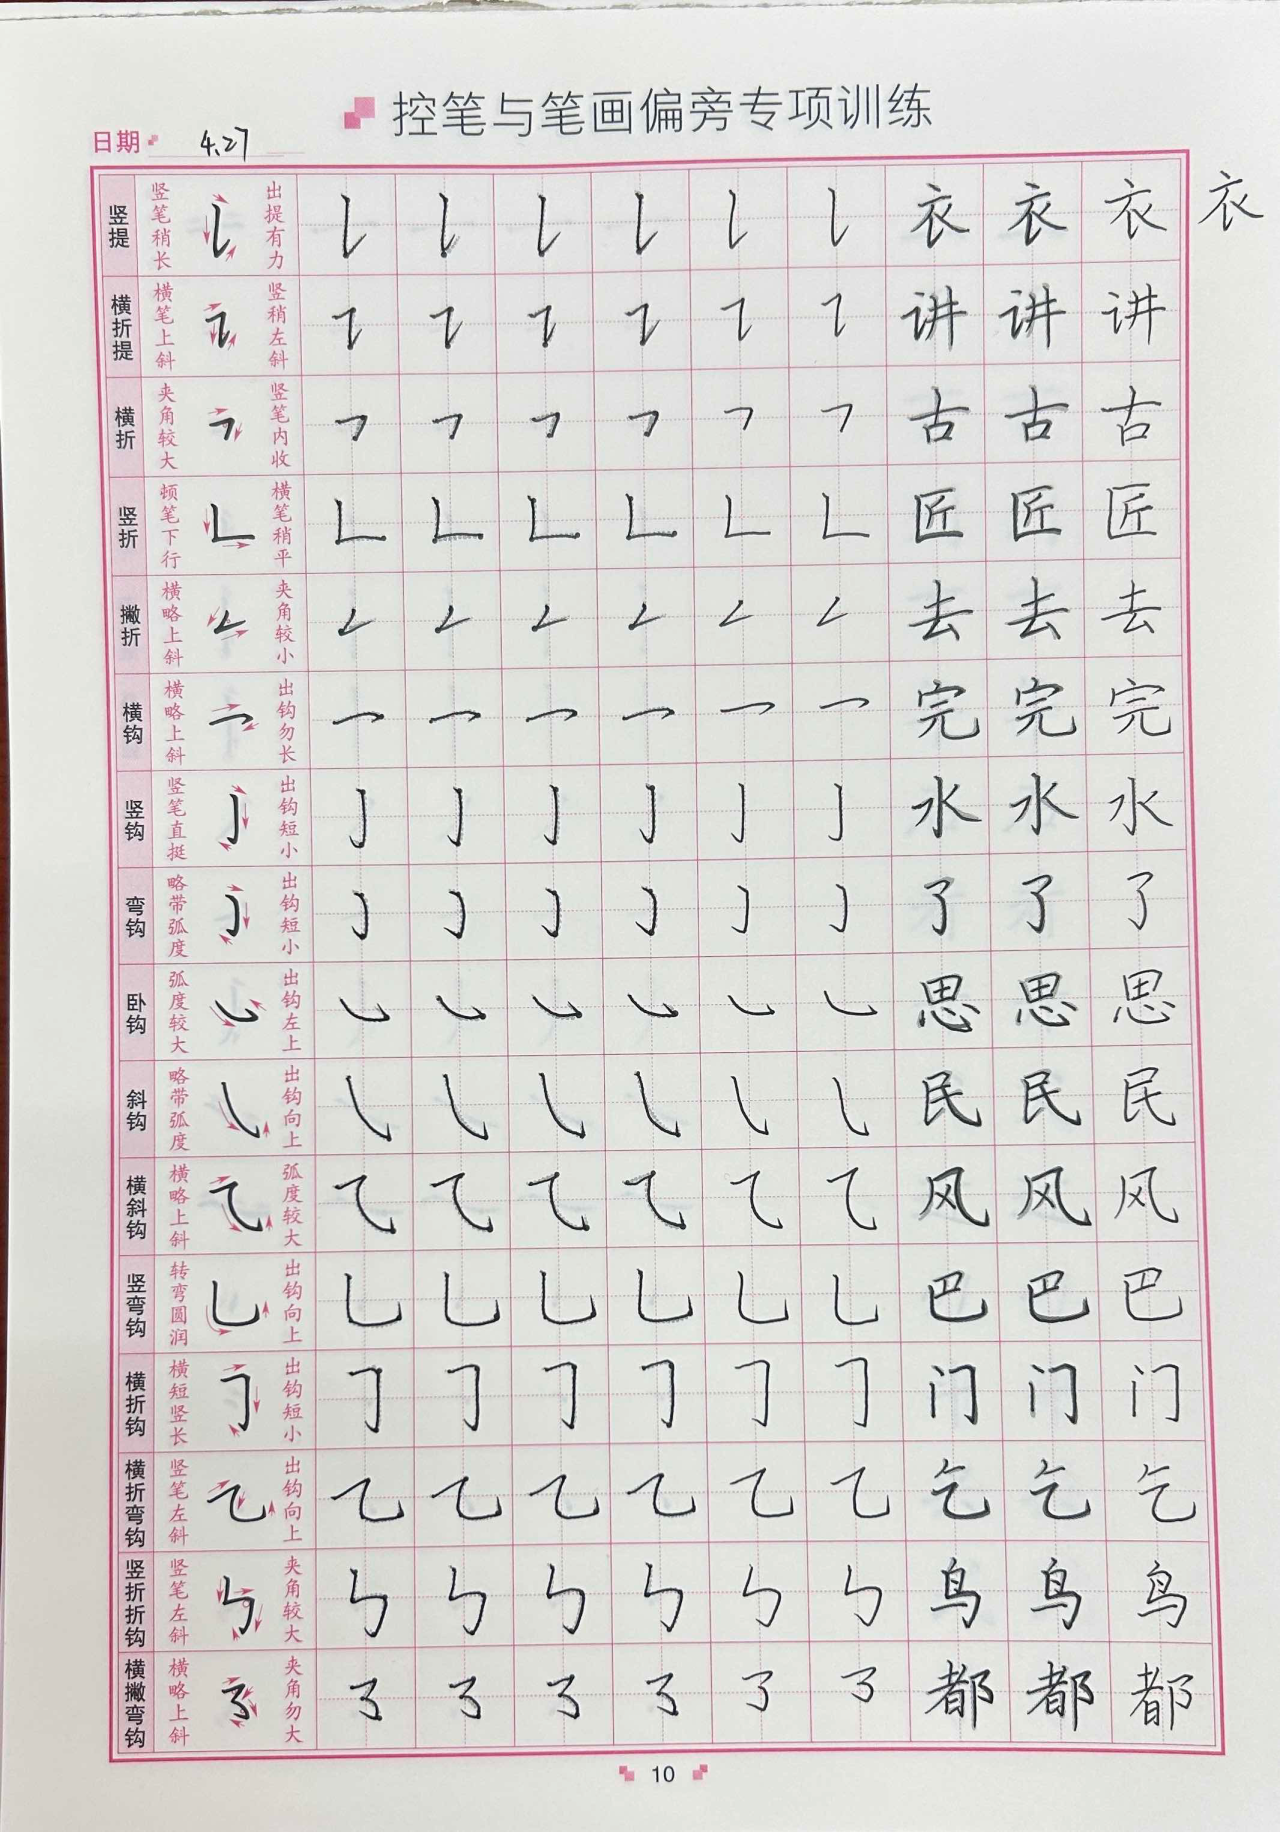 控笔与笔画偏旁专项训练
日期 4.27
竖提 竖笔稍长 出提有力 衣 衣 衣 衣
横折提 横笔上斜 竖稍左斜 讲 讲 讲
横折 夹角较大 竖笔内收 古 古 古
竖折 顿笔下行 横笔稍平 匠 匠 匠
撇折 横略上斜 夹角较小 去 去 去
横钩 横略上斜 出钩勿长 完 完 完
竖钩 竖笔直挺 出钩短小 水 水 水
弯钩 略带弧度 出钩短小 了 了 了
卧钩 弧度较大 出钩左上 思 思 思
斜钩 略带弧度 出钩向上 民 民 民
横斜钩 横略上斜 弧度较大 风 风 风
竖弯钩 转弯圆润 出钩向上 巴 巴 巴
横折钩 横短竖长 出钩短小 门 门 门
横折弯钩 竖笔左斜 出钩向上 乞 乞 乞
竖折折钩 竖笔左斜 夹角较大 鸟 鸟 鸟
横撇弯钩 横略上斜 夹角勿大 都 都 都
10